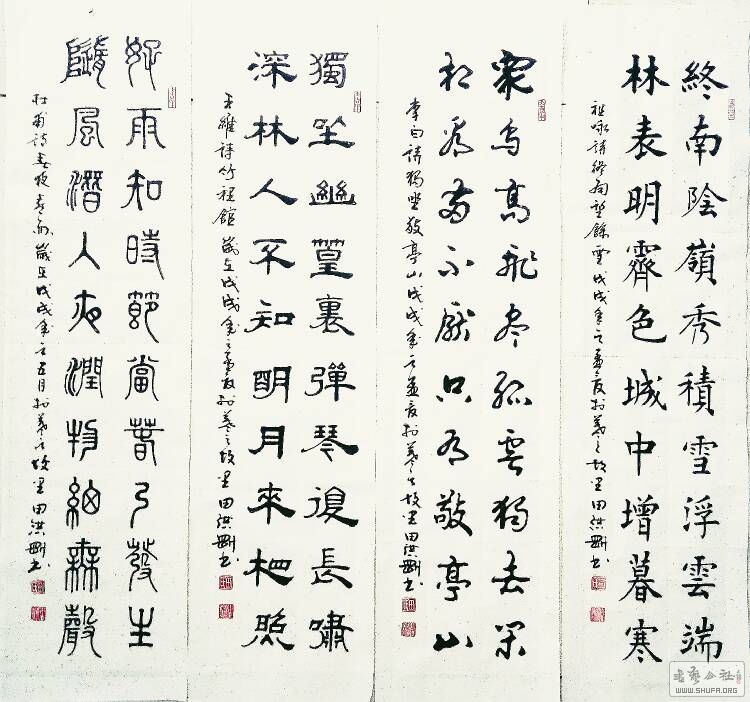 終南陰嶺秀積雪浮雲端
林表明霽色城中增暮寒
祖咏詩終南望餘雪戊戌年之孟夏於羲之故里田洪剛書
衆鳥高飛盡孤雲獨去閑
相看兩不厭只有敬亭山
李白詩獨坐敬亭山戊戌年之孟夏於羲之故里田洪剛書
獨坐幽篁裏彈琴復長嘯
深林人不知明月來相照
王維詩竹裡館歲在戊戌年之孟夏於羲之故里田洪剛書
好雨知時節當春乃發生
隨風潛入夜潤物細無聲
杜甫詩春夜喜雨歲在戊戌年之五月於羲之故里田洪剛書
書藝公社
WWW.SHUFA.ORG